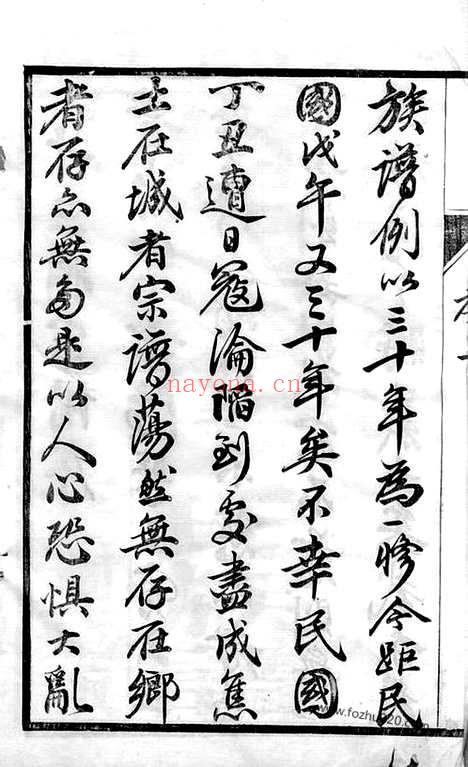 族譜例以三十年為一修今距民
國戊午又三十年矣不幸民國
丁丑遭日寇淪陷到處盡成焦
土在城者宗譜蕩然無存在鄉
者存亦無多是以人心恐懼大亂
nayona.cn
www.fozhu920.com